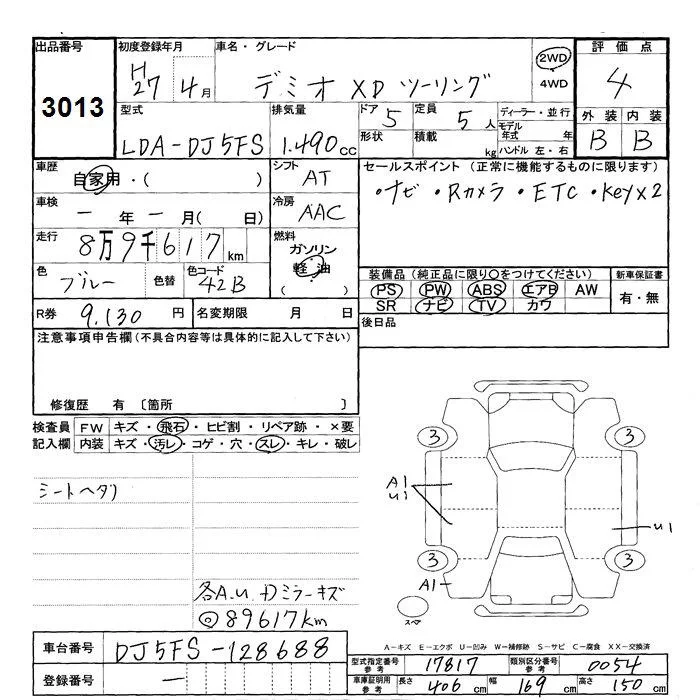 出品番号 初度登録年月 車名・グレード 2WD 評価点
3013 H27 4月 デミオ XD ツーリング 4WD 4
型式 排気量 ドア 5 定員 5人 ディーラー・並行 外装 内装
LDA-DJ5FS 1.490cc 形状 積載 kg モデル年式 年 B B
ハンドル 左・右
車歴 自家用・( ) シフト AT セールスポイント (正常に機能するものに限ります)
車検 一年一月( 日) 冷房 AAC ・ナビ・Rカメラ・ETC・Keyx2
走行 8万9千617km 燃料 ガソリン
軽油
( )
色 ブルー 色替 色コード 42B 装備品(純正品に限り○をつけてください) 新車保証書
PS PW ABS エアB AW 有・無
SR ナビ TV カワ
R券 9.130円 名変期限 月 日 後日品
注意事項申告欄(不具合内容等は具体的に記入して下さい)
修復歴 有 〔箇所 〕
検査員 FW キズ・飛石・ヒビ割・リペア跡・×要
記入欄 内装 キズ・汚レ・コゲ・穴・スレ・キレ・破レ
シートヘタリ
3 3
A1
U1
U1
3 3
A1
スペア
各A.U Dミラーキズ
◎89617km
A−キズ E−エクボ U−凹み W−補修跡 S−サビ C−腐食 XX−交換済
車台番号 DJ5FS-128688
型式指定番号 参考 17817 類別区分番号 参考 0054
登録番号 一
車庫証明用 参考 長さ 406cm 幅 169cm 高さ 150cm